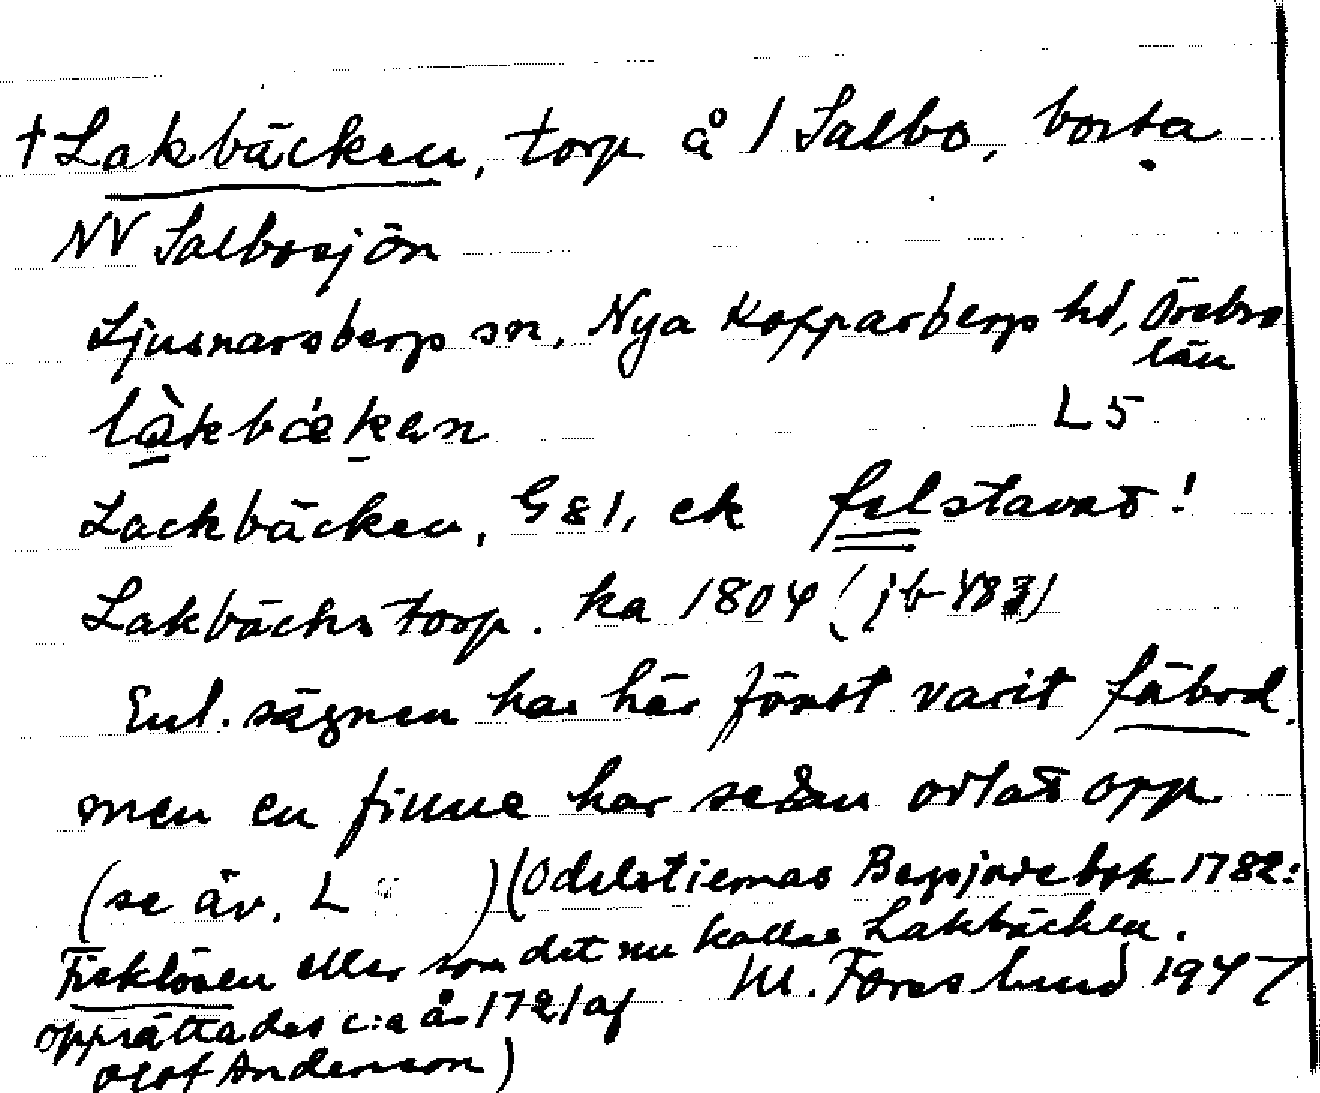 †Lakbäcken, torp å 1 Salbo, borta
NV Salbosjön
Ljusnarsbergs sn, Nya Kopparbergs hd, Örebro
län
làkbæ̀ken
L5
Lackbäcken, G81, ek felstavat!
Lakbäckstorp. ka 1804 (jb 483)
Enl. sägnen har här först varit fäbod.
men en finne har sedan odlat opp
(se äv. L )(Odelstiernas Bergsjordebok 1782:
Fisklösen eller som det nu kallas Lakbäcken.
opprättades c:a år 1721 af
Olof Anderson)
M. Forslund 1947